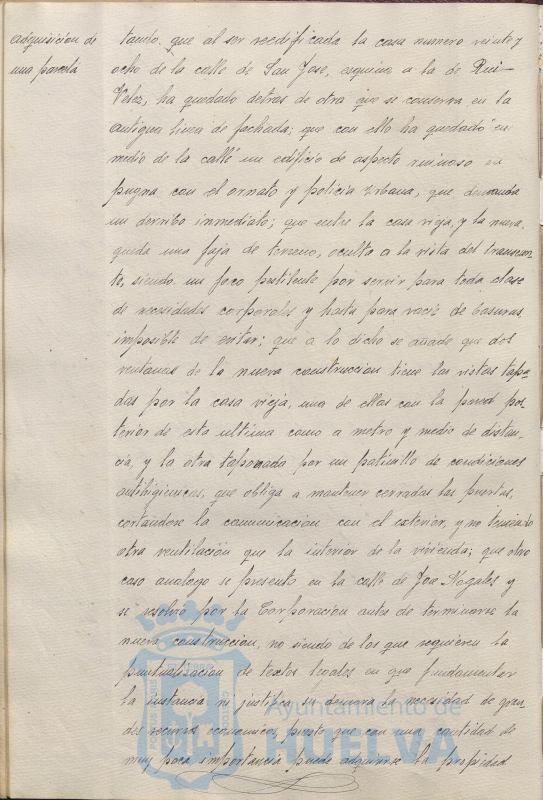 adquisición de
una parcela
tando que al ser reedificada la casa numero veinte y
ocho de la calle de San Jose, esquina a la de Rui-
Velez, ha quedado detras de otra que se conserva en la
antigua linea de fachada; que con ello ha quedado en
medio de la calle un edificio de aspecto ruinoso en
pugna con el ornato y policia urbana, que demanda
un derribo inmediato; que entre la casa vieja, y la nueva
queda una faja de terreno, oculta a la vista del transeun-
te, siendo un foco pestilente por servir para toda clase
de necesidades corporales y hasta para vacie de basuras
imposible de evitar; que a lo dicho se añade que dos
ventanas de la nueva construccion tiene las vistas tapa-
das por la casa vieja, una de ellas con la pared pos-
terior de esta ultima como a metro y medio de distan-
cia, y la otra taponada por un patinillo de condiciones
antihigienicas, que obliga a mantener cerradas las puertas,
cortandose la comunicacion con el exterior, y no teniendo
otra ventilación que la interior de la vivienda; que otro
caso analogo se presento en la calle de Jose Nogales y
se resolvió por la Corporacion antes de terminarse la
nueva construccion, no siendo de los que requieren la
puntualizacion de textos legales en que fundamentar
la instancia ni justifica su demora la necesidad de gran-
des recursos economicos, puesto que con una cantidad de
muy poca importancia puede adquirirse la propiedad
Ayuntamiento de
HUELVA